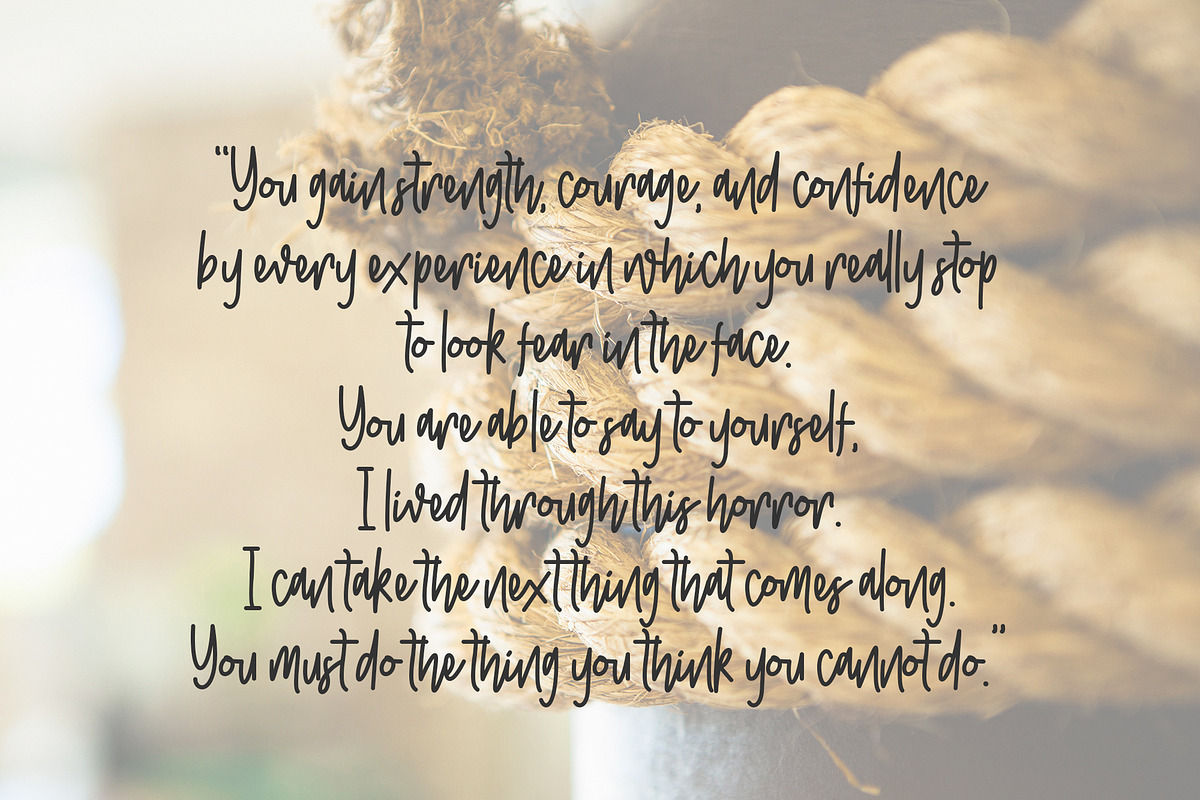 “You gain strength, courage, and confidence
by every experience in which you really stop
to look fear in the face.
You are able to say to yourself,
I lived through this horror.
I can take the next thing that comes along.
You must do the thing you think you cannot do.”